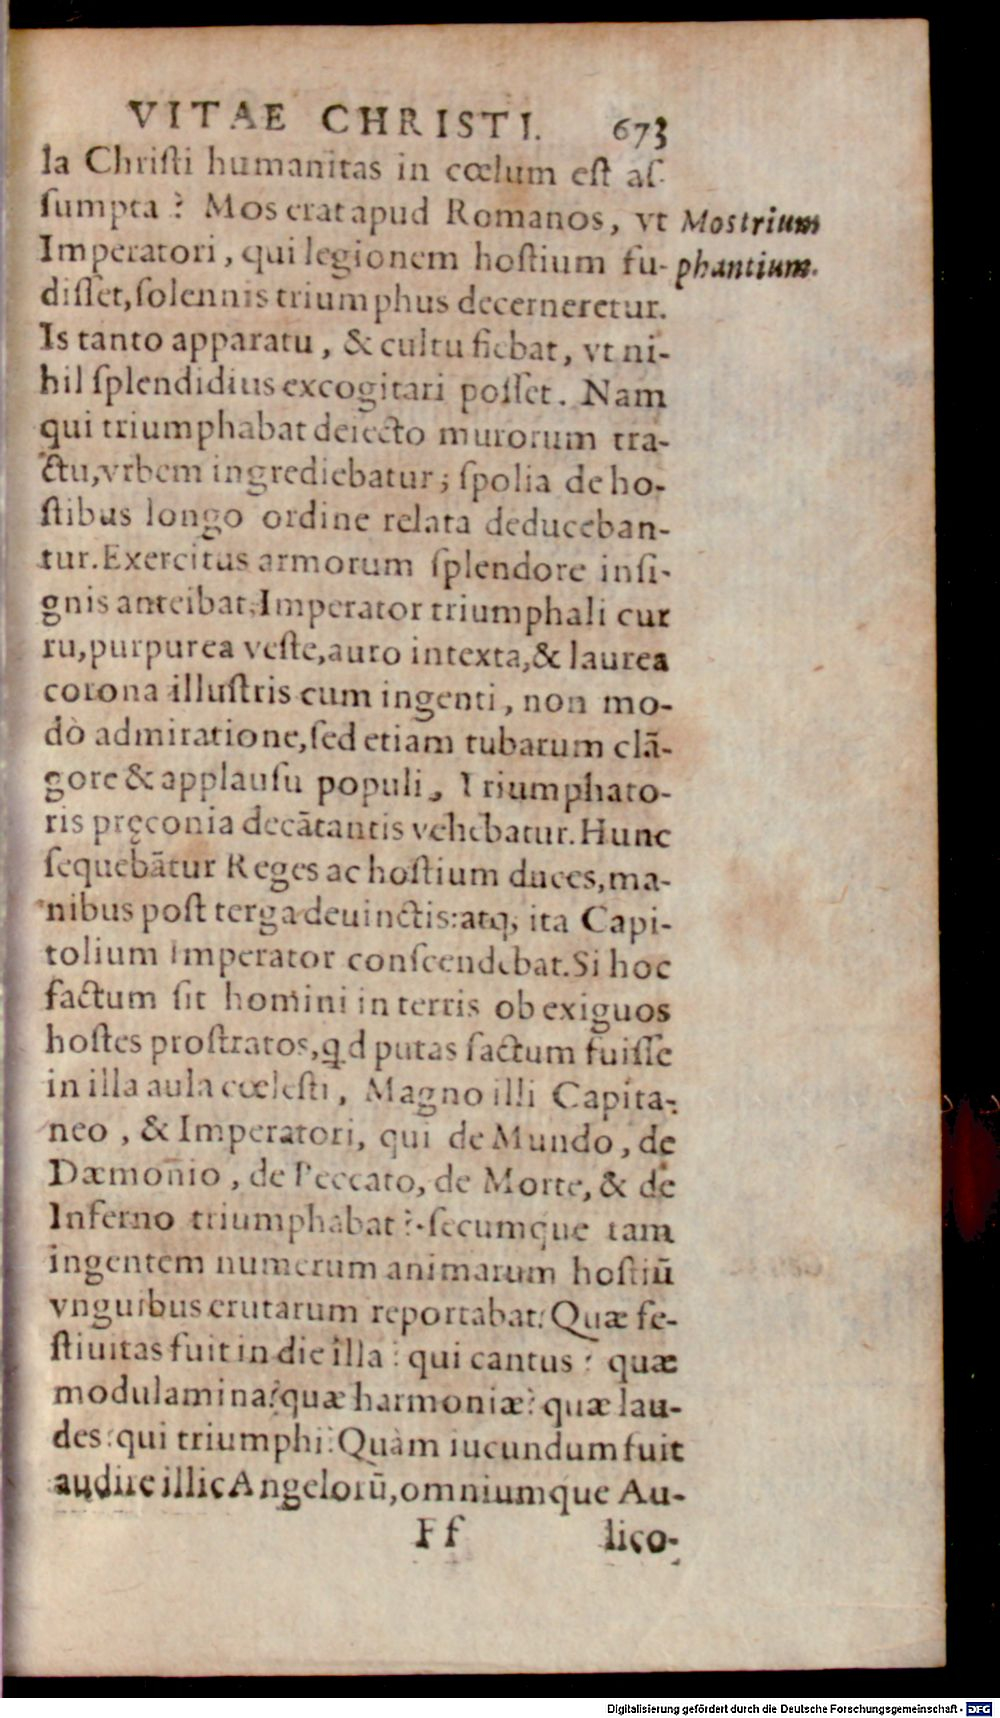 VITAE CHRISTI. 673
la Christi humanitas in cœlum est as-
sumpta? Mos erat apud Romanos, vt
Mostrium
phantium.
Imperatori, qui legionem hostium fu-
disset, solennis triumphus decerneretur.
Is tanto apparatu, & cultu fiebat, vt ni-
hil splendidius excogitari posset. Nam
qui triumphabat deiecto murorum tra-
ctu, vrbem ingrediebatur; spolia de ho-
stibus longo ordine relata deduceban-
tur. Exercitus armorum splendore insi-
gnis anteibat. Imperator triumphali cur
ru, purpurea veste, auro intexta, & laurea
corona illustris cum ingenti, non mo-
dò admiratione, sed etiam tubarum clā-
gore & applausu populi, Triumphato-
ris pręconia decātantis vehebatur. Hunc
sequebātur Reges ac hostium duces, ma-
nibus post terga deuinctis: atq; ita Capi-
tolium Imperator conscendebat. Si hoc
factum sit homini in terris ob exiguos
hostes prostratos, qd putas factum fuisse
in illa aula cœlesti, Magno illi Capita-
neo, & Imperatori, qui de Mundo, de
Dæmonio, de Peccato, de Morte, & de
Inferno triumphabat? secumque tam
ingentem numerum animarum hostiū
vnguibus erutarum reportabat? Quæ fe-
stiuitas fuit in die illa? qui cantus? quæ
modulamina? quæ harmoniæ? quæ lau-
des? qui triumphi? Quàm iucundum fuit
audire illic Angelorū, omniumque Au-
Ff lico-
Digitalisierung gefördert durch die Deutsche Forschungsgemeinschaft - DFG